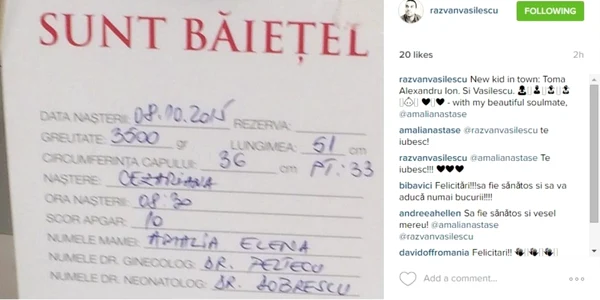 SUNT BĂIEȚEL
DATA NAȘTERII: 08.10.2015 REZERVA:
GREUTATE: 3500 gr LUNGIMEA: 51 cm
CIRCUMFERINȚA CAPULUI: 36 cm PT.: 33
NAȘTERE: CEZARIANA
ORA NAȘTERII: 08:30
SCOR APGAR: 10
NUMELE MAMEI: AMALIA ELENA
NUMELE DR. GINECOLOG: DR. PELTECU
NUMELE DR. NEONATOLOG: DR. DOBRESCU
razvanvasilescu FOLLOWING
20 likes 2h
razvanvasilescu New kid in town: Toma
Alexandru Ion. Si Vasilescu.
- with my beautiful soulmate,
@amalianastase
amalianastase @razvanvasilescu te
iubesc!
razvanvasilescu @amalianastase Te
iubesc!!! ♥♥♥
bibavici Felicitări!!!sa fie sănătos si sa va
aducă numai bucurii!!!!
andreeahellen Sa fie sănătos si vesel
mereu! @amalianastase
@razvanvasilescu
davidoffromania Felicitari!!
Add a comment...